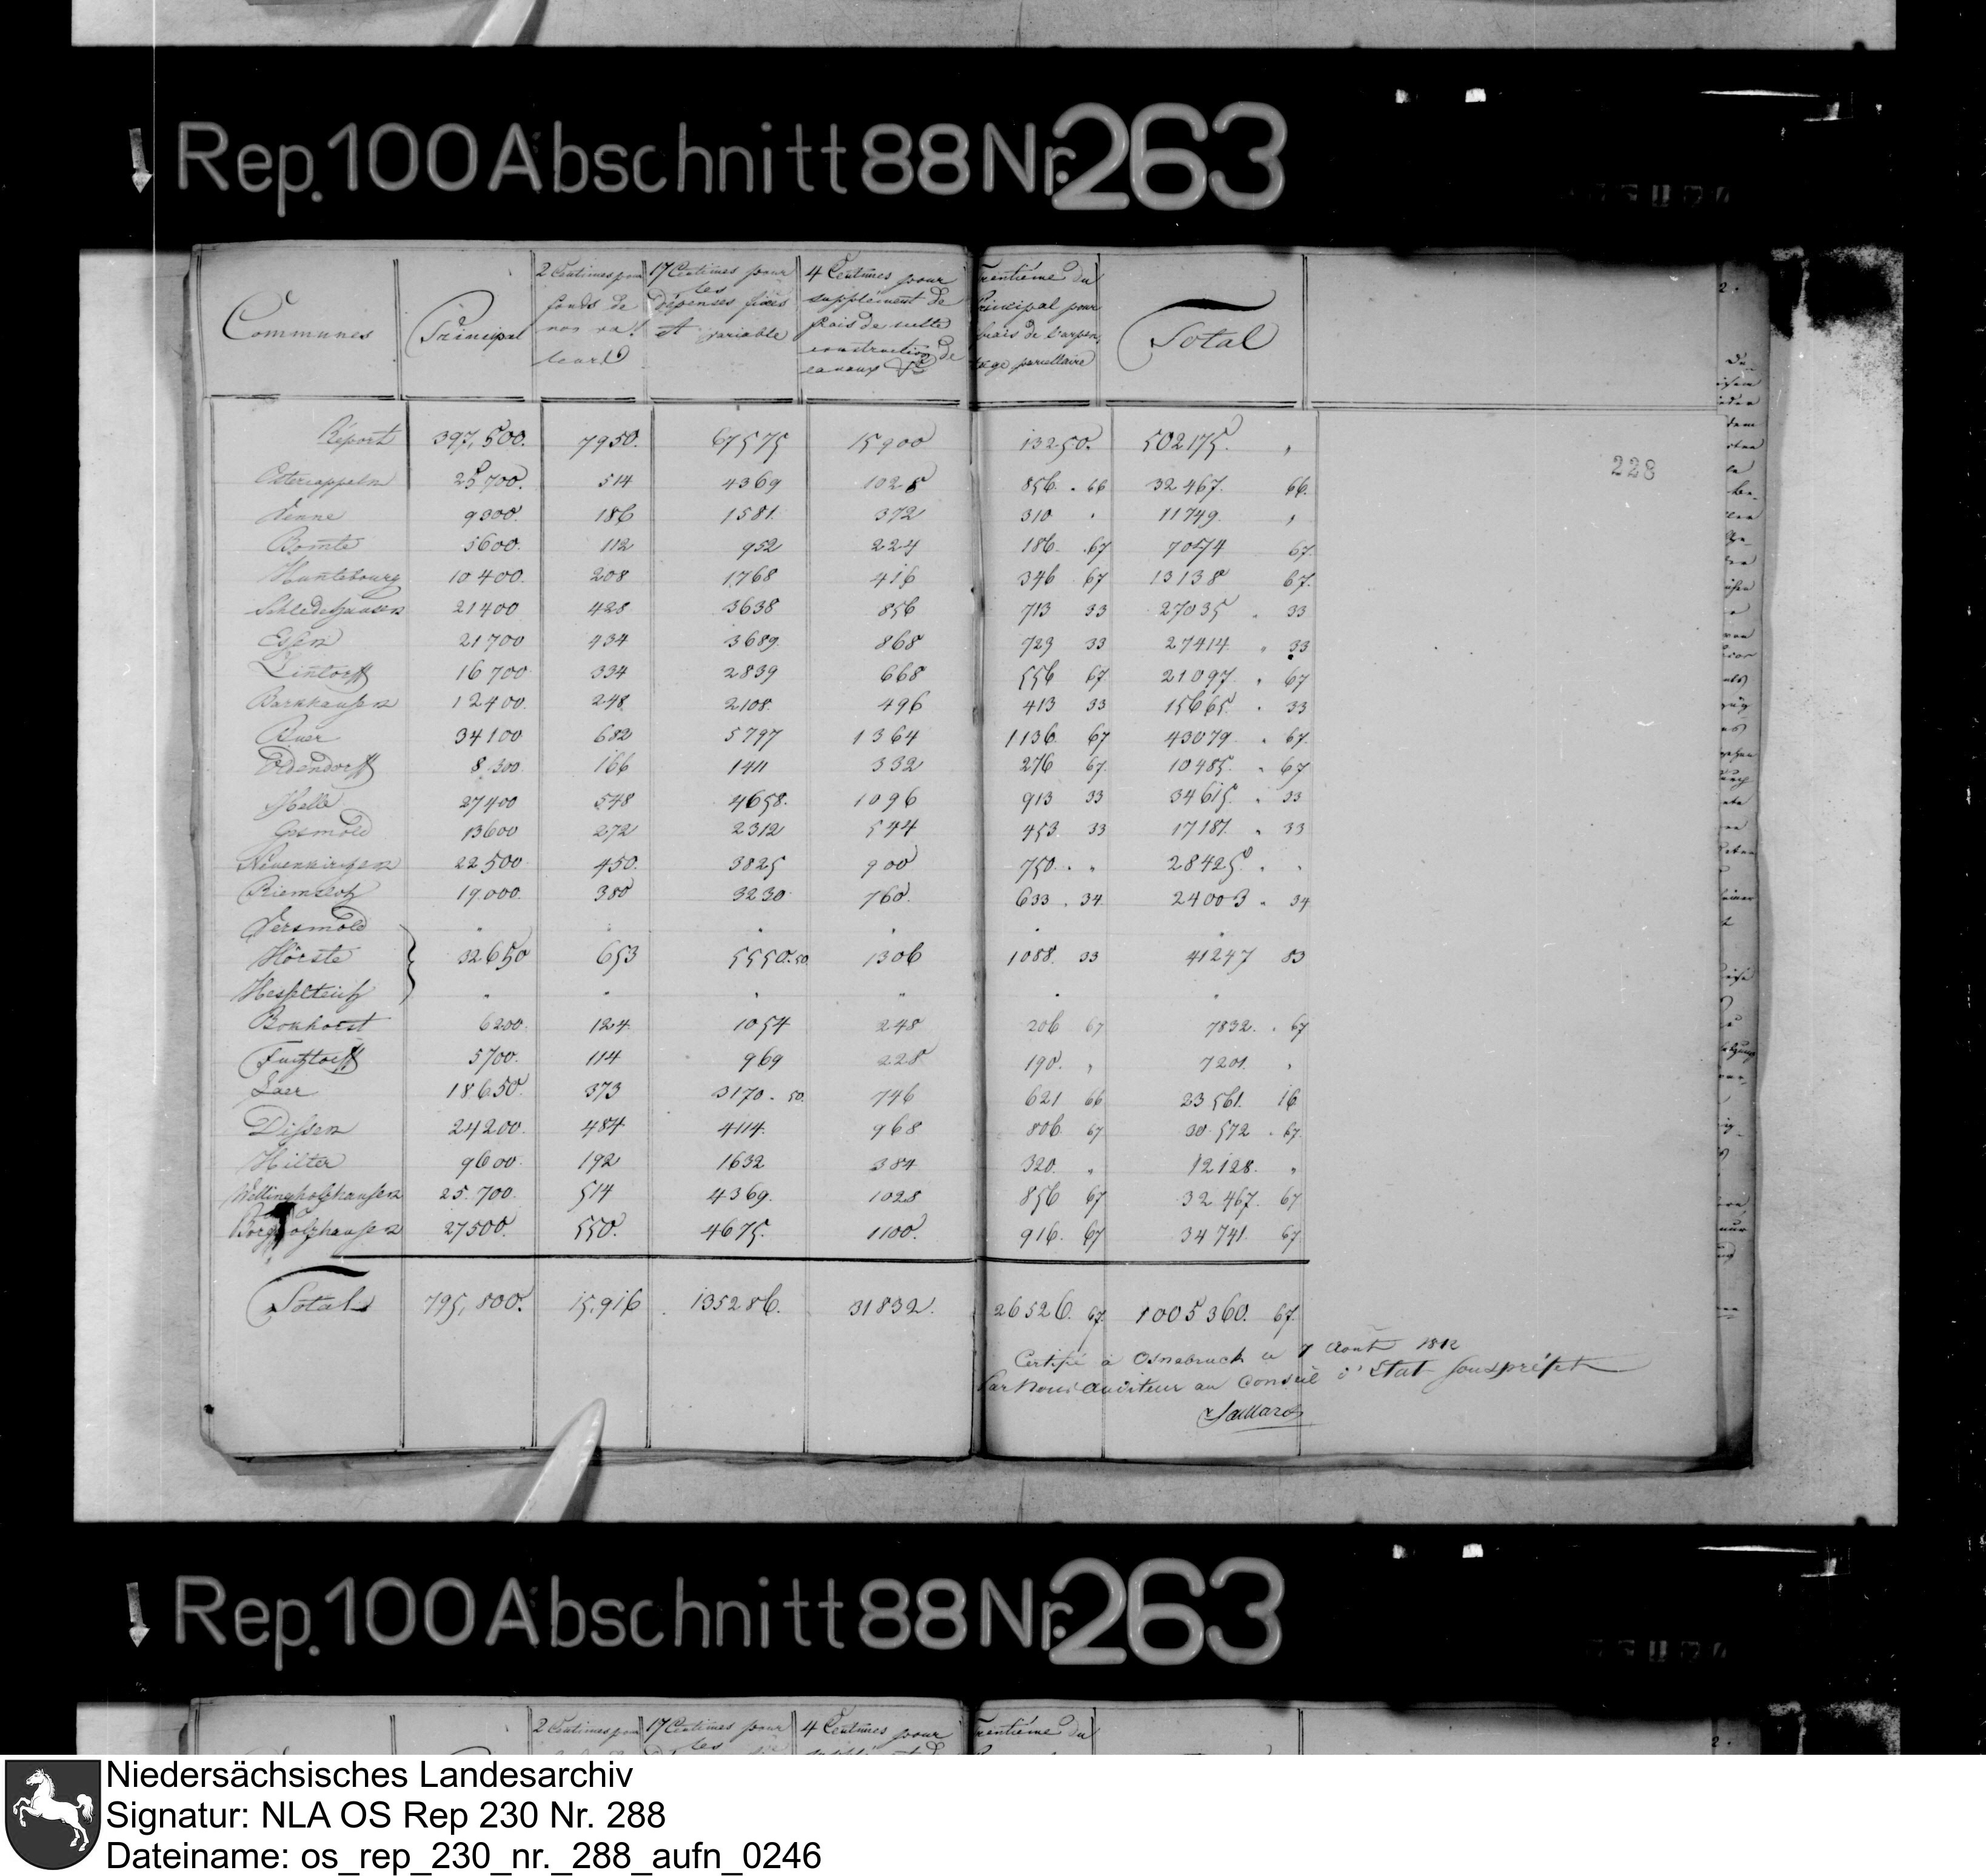 Rep. 100 Abschnitt 88 Nr. 263
Communes | Principal | 2 Centimes pour fonds de non valeurs | 17 Centimes pour les dépenses fixes et variable | 4 Centimes pour supplément de frais de culte construction de canaux &c | Trentième du Principal pour frais de l'arpentage parcellaire | Total
Report 397,500. 7950. 67575 15900 13250. 502175. "
Ostercappeln 25700. 514 4369 1028 856. 66 32467. 66.
Venne 9300. 186 1581. 372 310 " 11749. "
Bomte 5600. 112 952 224 186. 67 7074 67.
Huntebourg 10400. 208 1768 416 346 67 13138 67.
Schledehausen 21400 428 3638 856 713 33 27035 33
Essen 21700 434 3689. 868 723 33 27414 33
Lintorff 16700 334 2839 668 556 67 21097. 67
Barkhausen 12400. 248. 2108. 496 413 33 15665. 33
Buer 34100 682 5797 1364 1136. 67 43079 67.
Oldendorff 8300. 166 1411 332 276 67. 10485. 67
Melle 27400 548 4658. 1096 913 33 34615. 33
Gesmold 13600 272 2312 544 453. 33 17181. 33
Neuenkirchen 22500. 450. 3825 900 750. " 28425. "
Riemsloh 19.000. 380 3230. 760. 633. 34 24003. 34
Versmold
Hörste 32650 653 5550.50. 1306 1088. 33 41247 83
Hesselteich
Bonhorst 6200. 124. 1054 248 206 67 7832. 67
Fuchtorff 5700. 114 969 228 190. " 7201. "
Laer 18650. 373 3170. 50. 746 621 66 23561. 16
Dissen 24200. 484 4114. 968 806. 67 30.572. 67.
Hilter 9600. 192 1632 384 320. " 12128. "
Wellingholzhausen 25.700. 514 4369. 1028 856 67 32.467. 67
Borgholzhausen 27500. 550. 4675. 1100. 916. 67 34741. 67.
Total 795,800. 15,916 135286. 31832. 26526. 67. 1005360. 67.
Certifié à Osnabruck le 7 Août 1812
Par Nous Auditeur au Conseil d'Etat Souspréfet
228
Rep. 100 Abschnitt 88 Nr. 263
2 Centimes pour 17 Centimes pour les 4 Centimes pour Trentième du
Niedersächsisches Landesarchiv
Signatur: NLA OS Rep 230 Nr. 288
Dateiname: os_rep_230_nr._288_aufn_0246